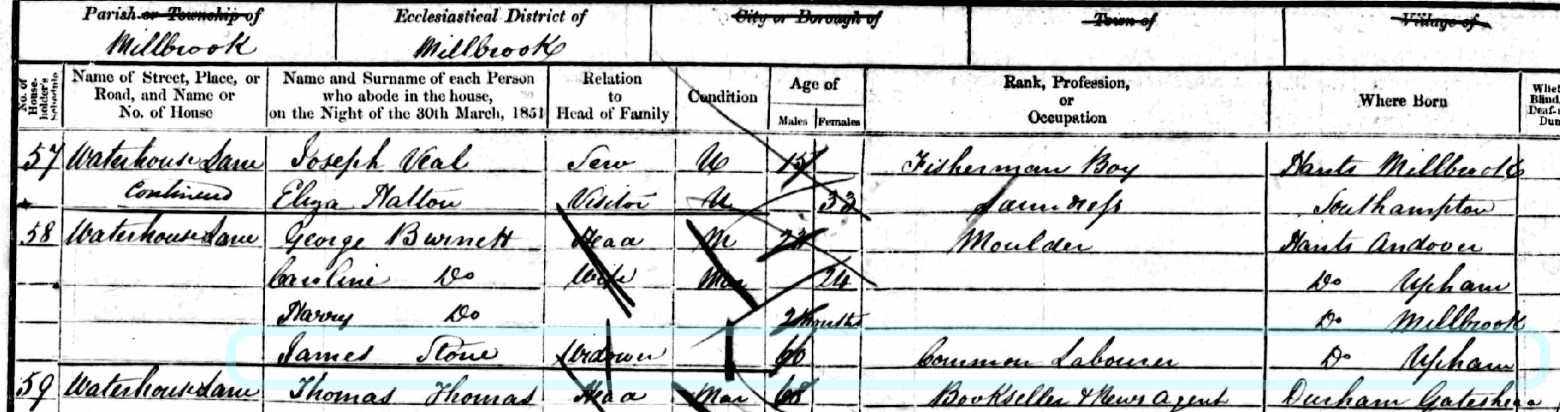 Parish or Township of Ecclesiastical District of City or Borough of Town of Village of
Millbrook Millbrook
No. of House-holder's Schedule Name of Street, Place, or Road, and Name or No. of House Name and Surname of each Person who abode in the house, on the Night of the 30th March, 1851 Relation to Head of Family Condition Age of Males Females Rank, Profession, or Occupation Where Born
57 Waterhouse Lane Joseph Veal Serv U 15 Fisherman Boy Hants Millbrook
Continued Eliza Hatton Visitor U 33 Laundress Southampton
58 Waterhouse Lane George Burnett Head M 23 Moulder Hants Andover
Caroline Do Wife Mar 24 Do Upham
Harry Do 2 Months Do Millbrook
James Stone Widower 60 Common Labourer Do Upham
59 Waterhouse Lane Thomas Thomas Head Mar 68 Bookseller & News Agent Durham Gateshead